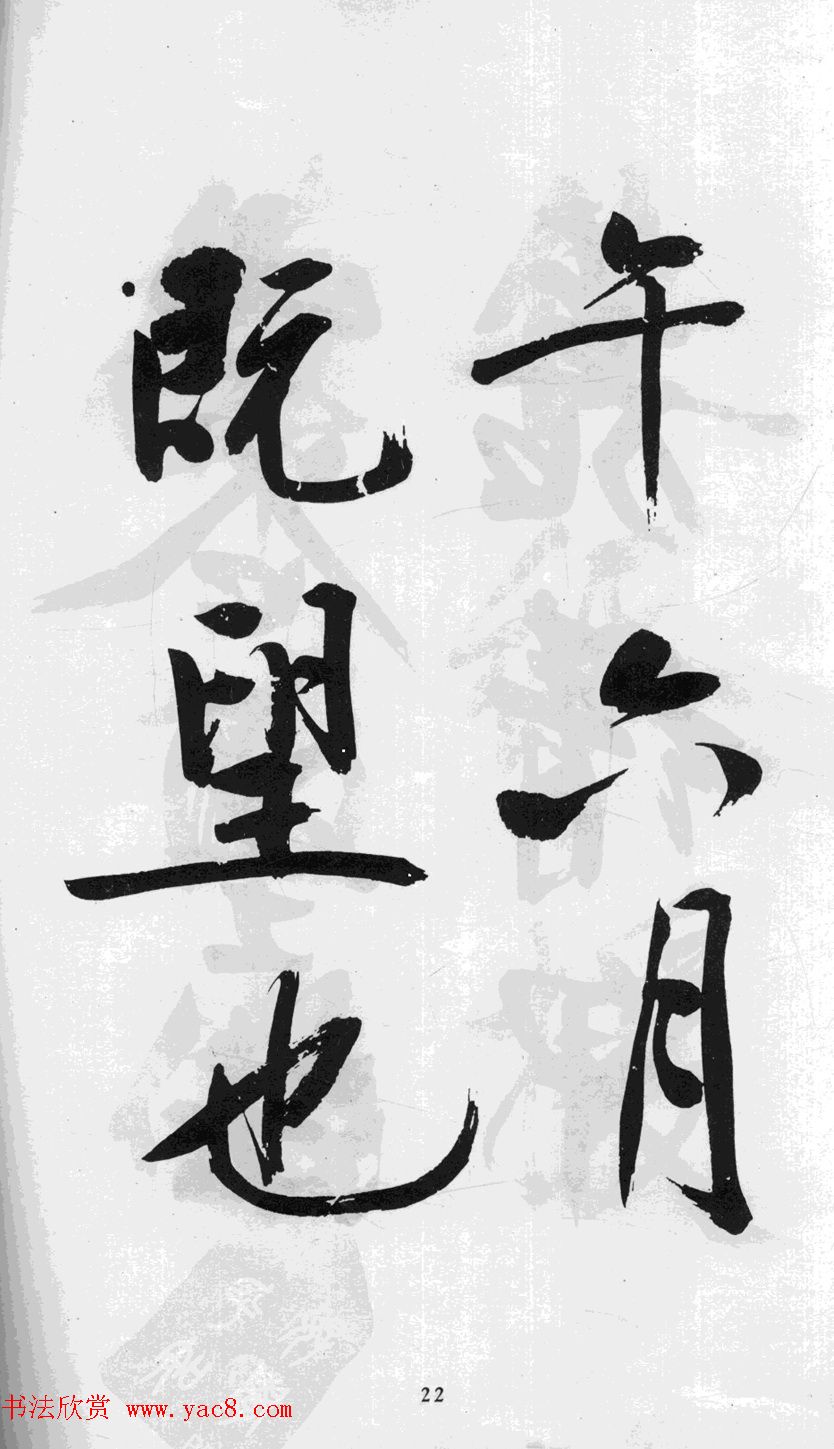 午六月
既望也
22
书法欣赏 www.yac8.com